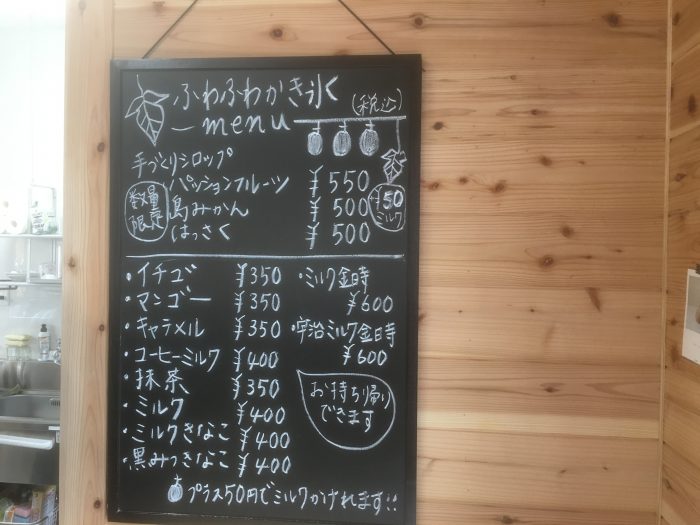 ふわふわかき氷
menu
(税込)
手づくりシロップ
数量限定
パッションフルーツ ¥550
島みかん ¥500
はっさく ¥500
¥50
ミルク
・イチゴ ¥350
・マンゴー ¥350
・キャラメル ¥350
・コーヒーミルク ¥400
・抹茶 ¥350
・ミルク ¥400
・ミルクきなこ ¥400
・黒みつきなこ ¥400
・ミルク金時
¥600
・宇治ミルク金時
¥600
お持ち帰り
できます
プラス50円でミルクかけれます!!